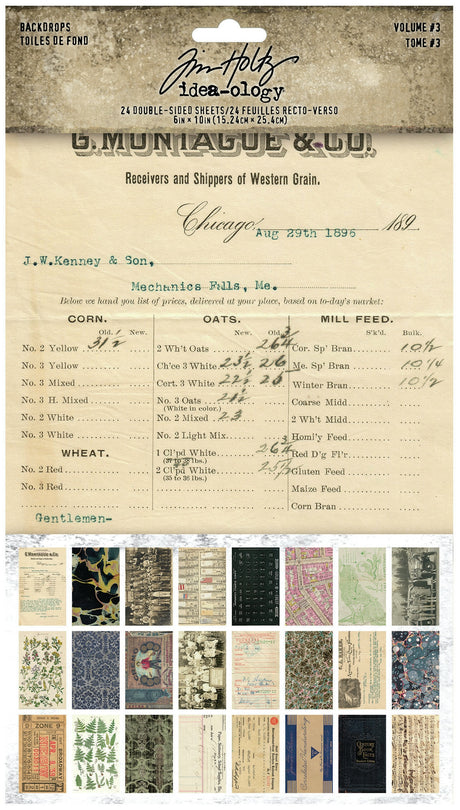 BACKDROPS
TOILES DE FOND
VOLUME #3
TOME #3
Tim Holtz
idea-ology
24 DOUBLE-SIDED SHEETS/24 FEUILLES RECTO-VERSO
6IN × 10IN (15.24CM × 25.4CM)
G. MONTAGUE & CO.
Receivers and Shippers of Western Grain.
Chicago, Aug 29th 1896 189
J.W.Kenney & Son,
Mechanics Falls, Me.
Below we hand you list of prices, delivered at your place, based on to-day's market:
CORN. OATS. MILL FEED.
Old. New. Old. New. S'k'd. Bulk.
No. 2 Yellow 31½ 2 Wh't Oats 26¾ Cor. Sp' Bran 10½
No. 3 Yellow Ch'ce 3 White 23½ 26 Me. Sp' Bran 10¼
No. 3 Mixed Cort. 3 White 22½ 25 Winter Bran 10½
No. 3 H. Mixed No. 3 Oats 21½ Coarse Midd
(White in color.)
No. 2 White No. 2 Mixed 23 2 Wh't Midd
No. 3 White No. 2 Light Mix Homl'y Feed
WHEAT. 1 Cl'pd White 26¾ Red D'g Fl'r
(37 to 38 lbs.)
No. 2 Red 2 Cl'pd White 25½ Gluten Feed
(35 to 36 lbs.)
No. 3 Red Maize Feed
Corn Bran
Gentlemen-
ZONE 9